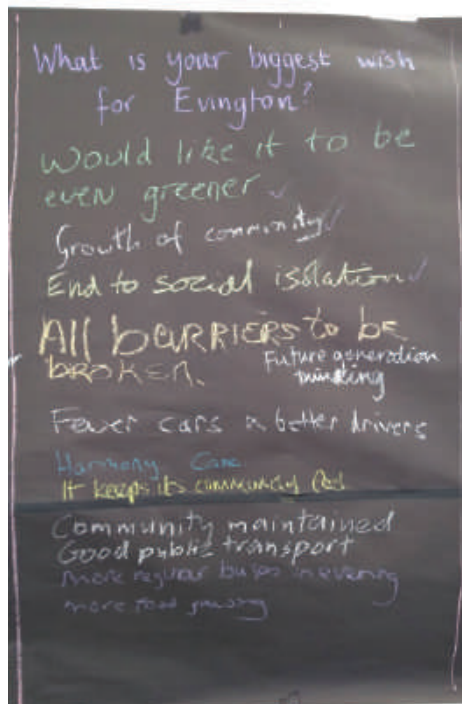 What is your biggest wish
for Evington?
Would like it to be
even greener ✓
Growth of community ✓
End to social isolation ✓
All baRRIERS to be
bROKEN.
Future generation
minding
Fewer cars & better drivers
Harmony Care
It keeps its community
Community maintained
Good public transport
more regular buses in evening
more food